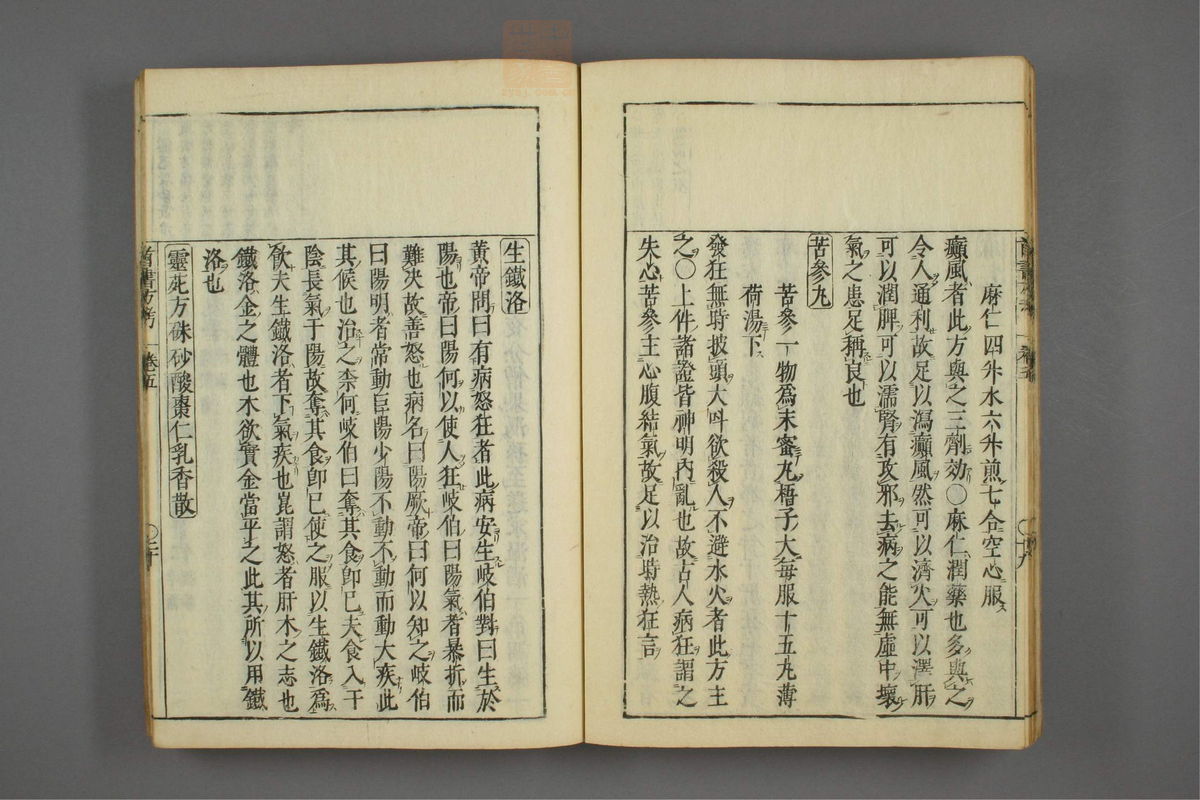 麻仁四升水六升煎七合空心服
癲風者此方與之三劑効〇麻仁潤藥也多與之
令人通利故足以瀉癲風然可以濟火可以澤肝
可以潤脾可以濡腎有攻邪去病之能無虛中壞
氣之患足稱良也
苦參丸
苦參一物爲末蜜丸梧子大每服十五丸薄
荷湯下
發狂無時披頭大呌欲殺人不避水火者此方主
之〇上件諸證皆神明內亂也故古人病狂謂之
失心苦參主心腹結氣故足以治時熱狂言
生鐵洛
黃帝問曰有病怒狂者此病安生岐伯對曰生於
陽也帝曰陽何以使人狂岐伯曰陽氣者暴折而
難决故善怒也病名曰陽厥帝曰何以知之岐伯
曰陽明者常動巨陽少陽不動不動而動大疾此
其候也治之柰何岐伯曰奪其食卽已夫食入于
陰長氣于陽故奪其食卽已使之服以生鐵洛爲
飮夫生鐵洛者下氣疾也崑謂怒者肝木之志也
鐵洛金之體也木欲實金當平之此其所以用鐵
洛也
靈苑方硃砂酸棗仁乳香散
卷五